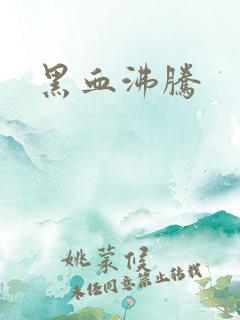 黑血沸騰
姚蒙俟
未经同意禁止转载